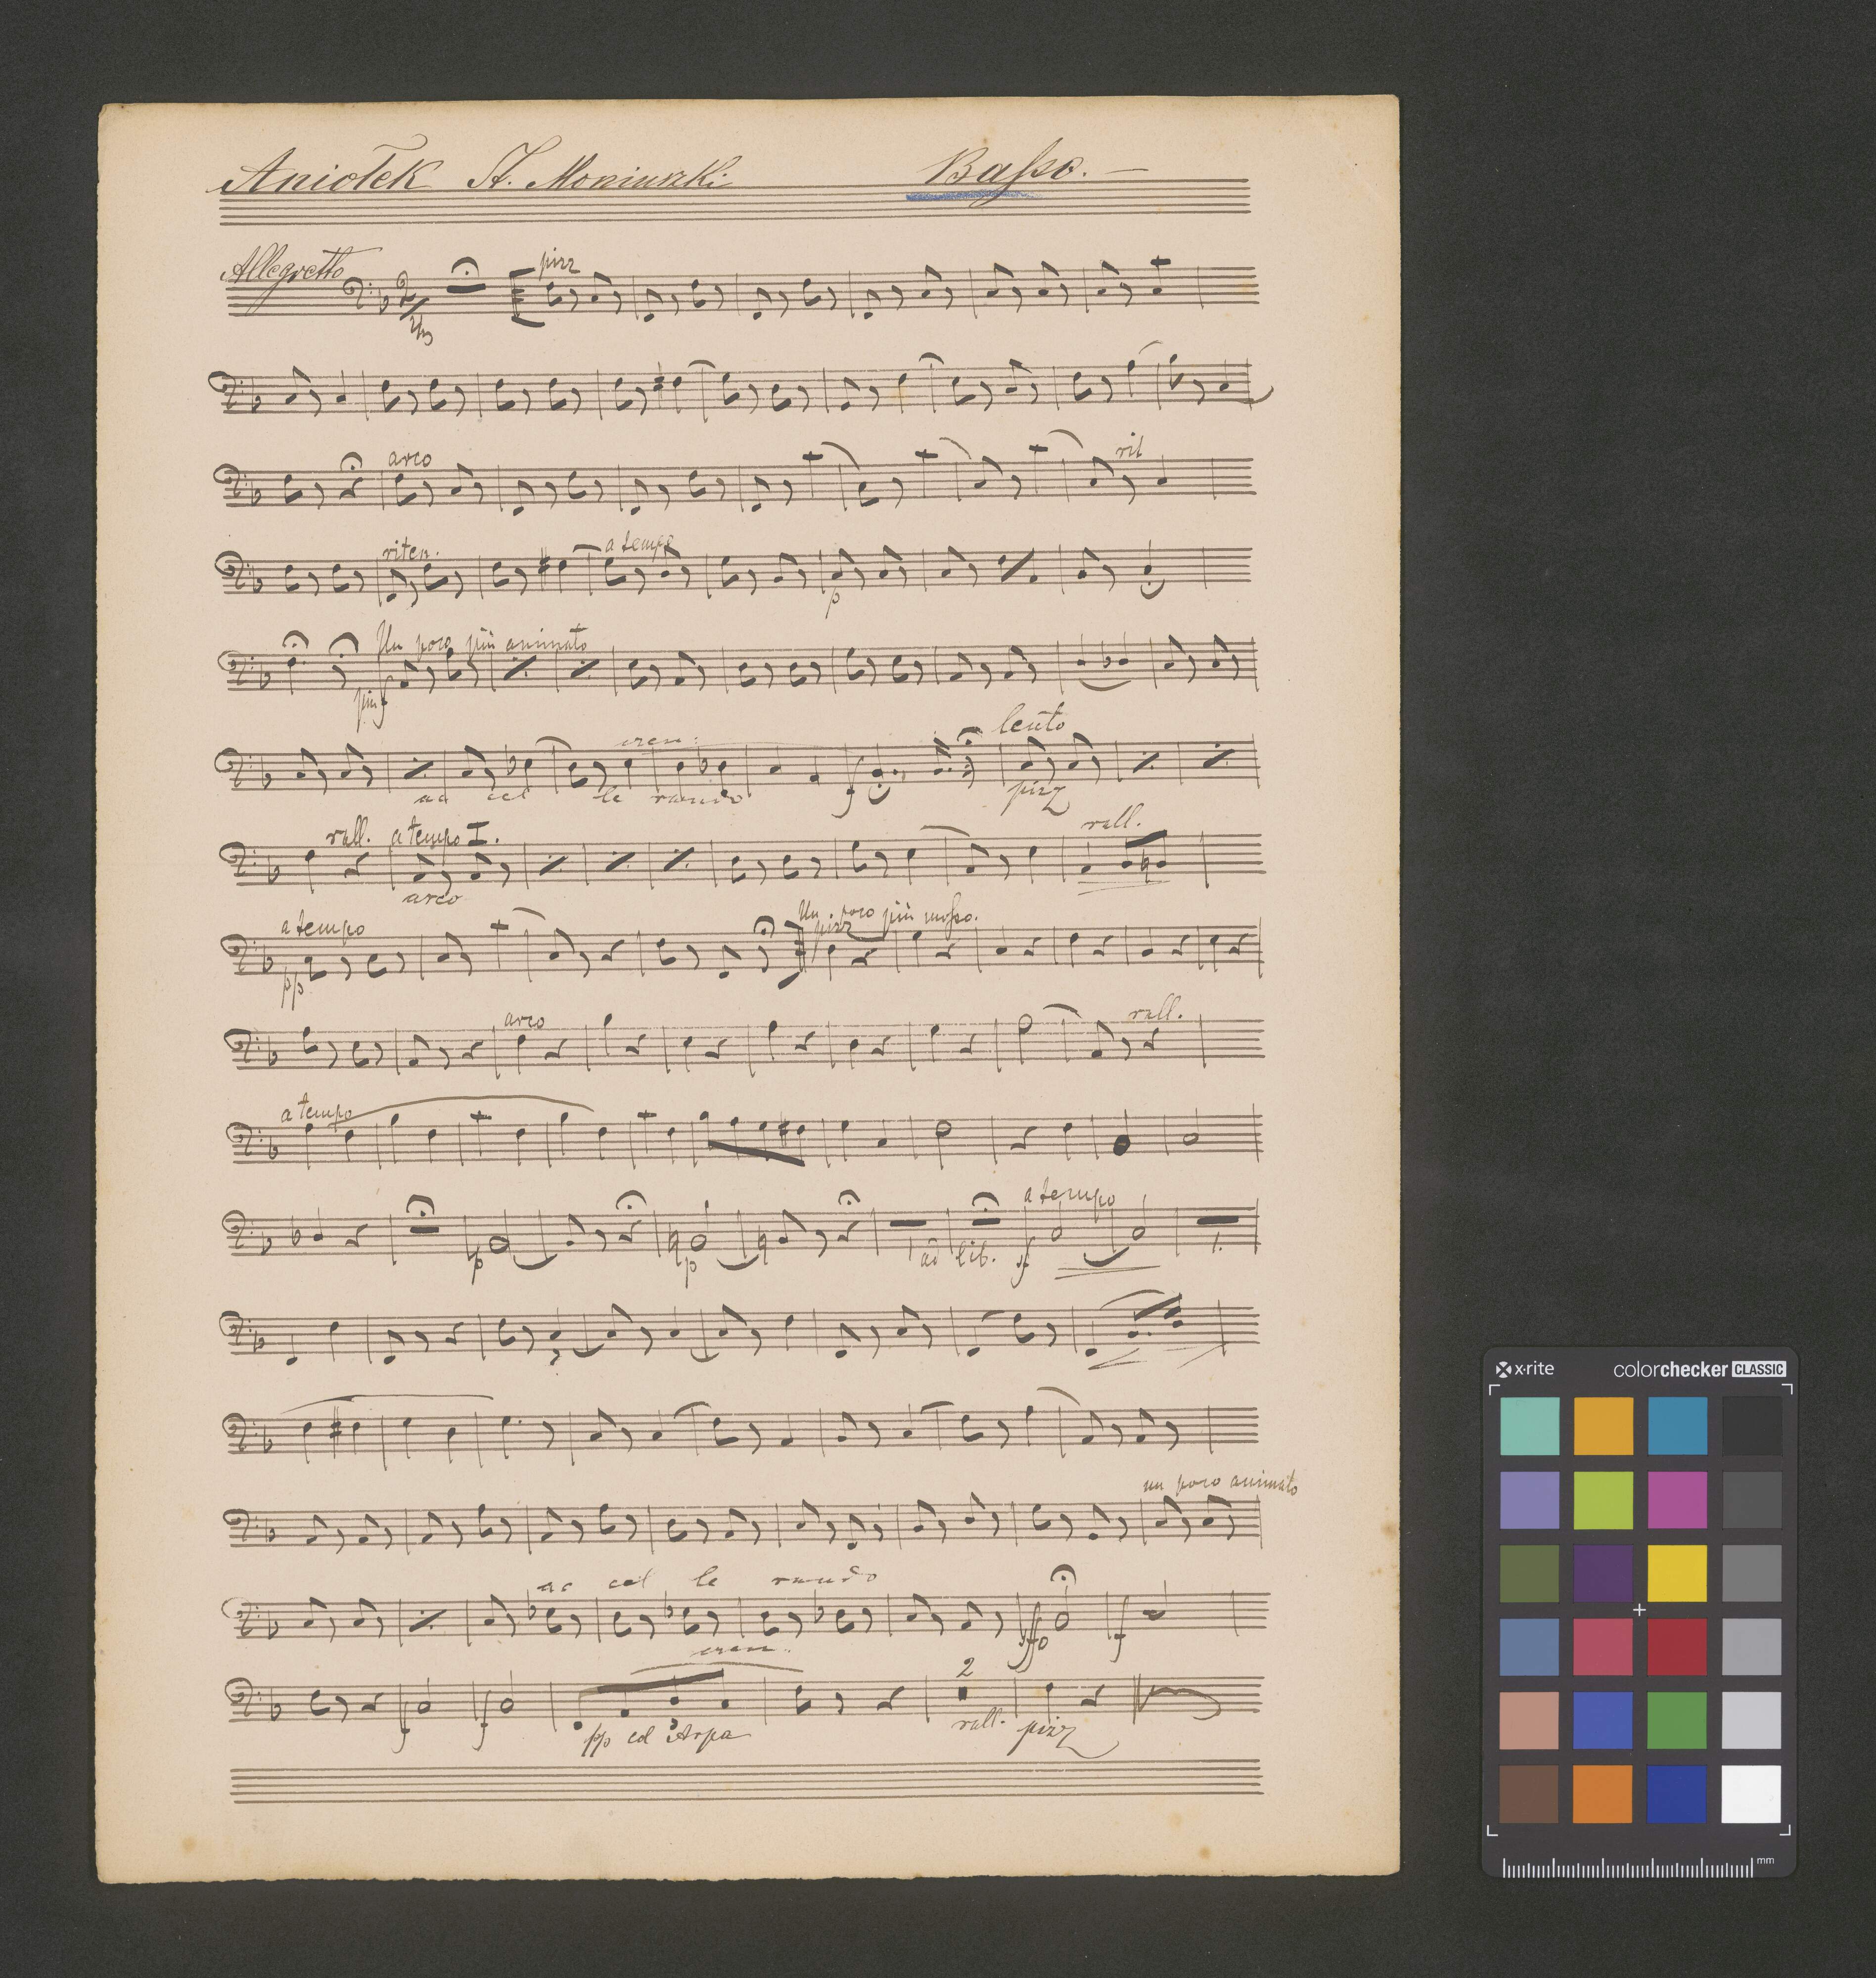 Aniołek St. Moniuszki Basso. —
Allegretto pizz
2/4
arco rit
riten. a tempo
p
Un poco più animato
più f
cresc: lento
ac cel le rando f pizz
rall. a tempo I. rall.
arco
a tempo Un poco più mosso.
pizz
pp
arco rall.
a tempo
a tempo
p p ad lib. sf 1.
un poco animato
ac cel le rando
cresc. f
2
f f pp col Arpa rall. pizz
x·rite colorchecker CLASSIC
mm